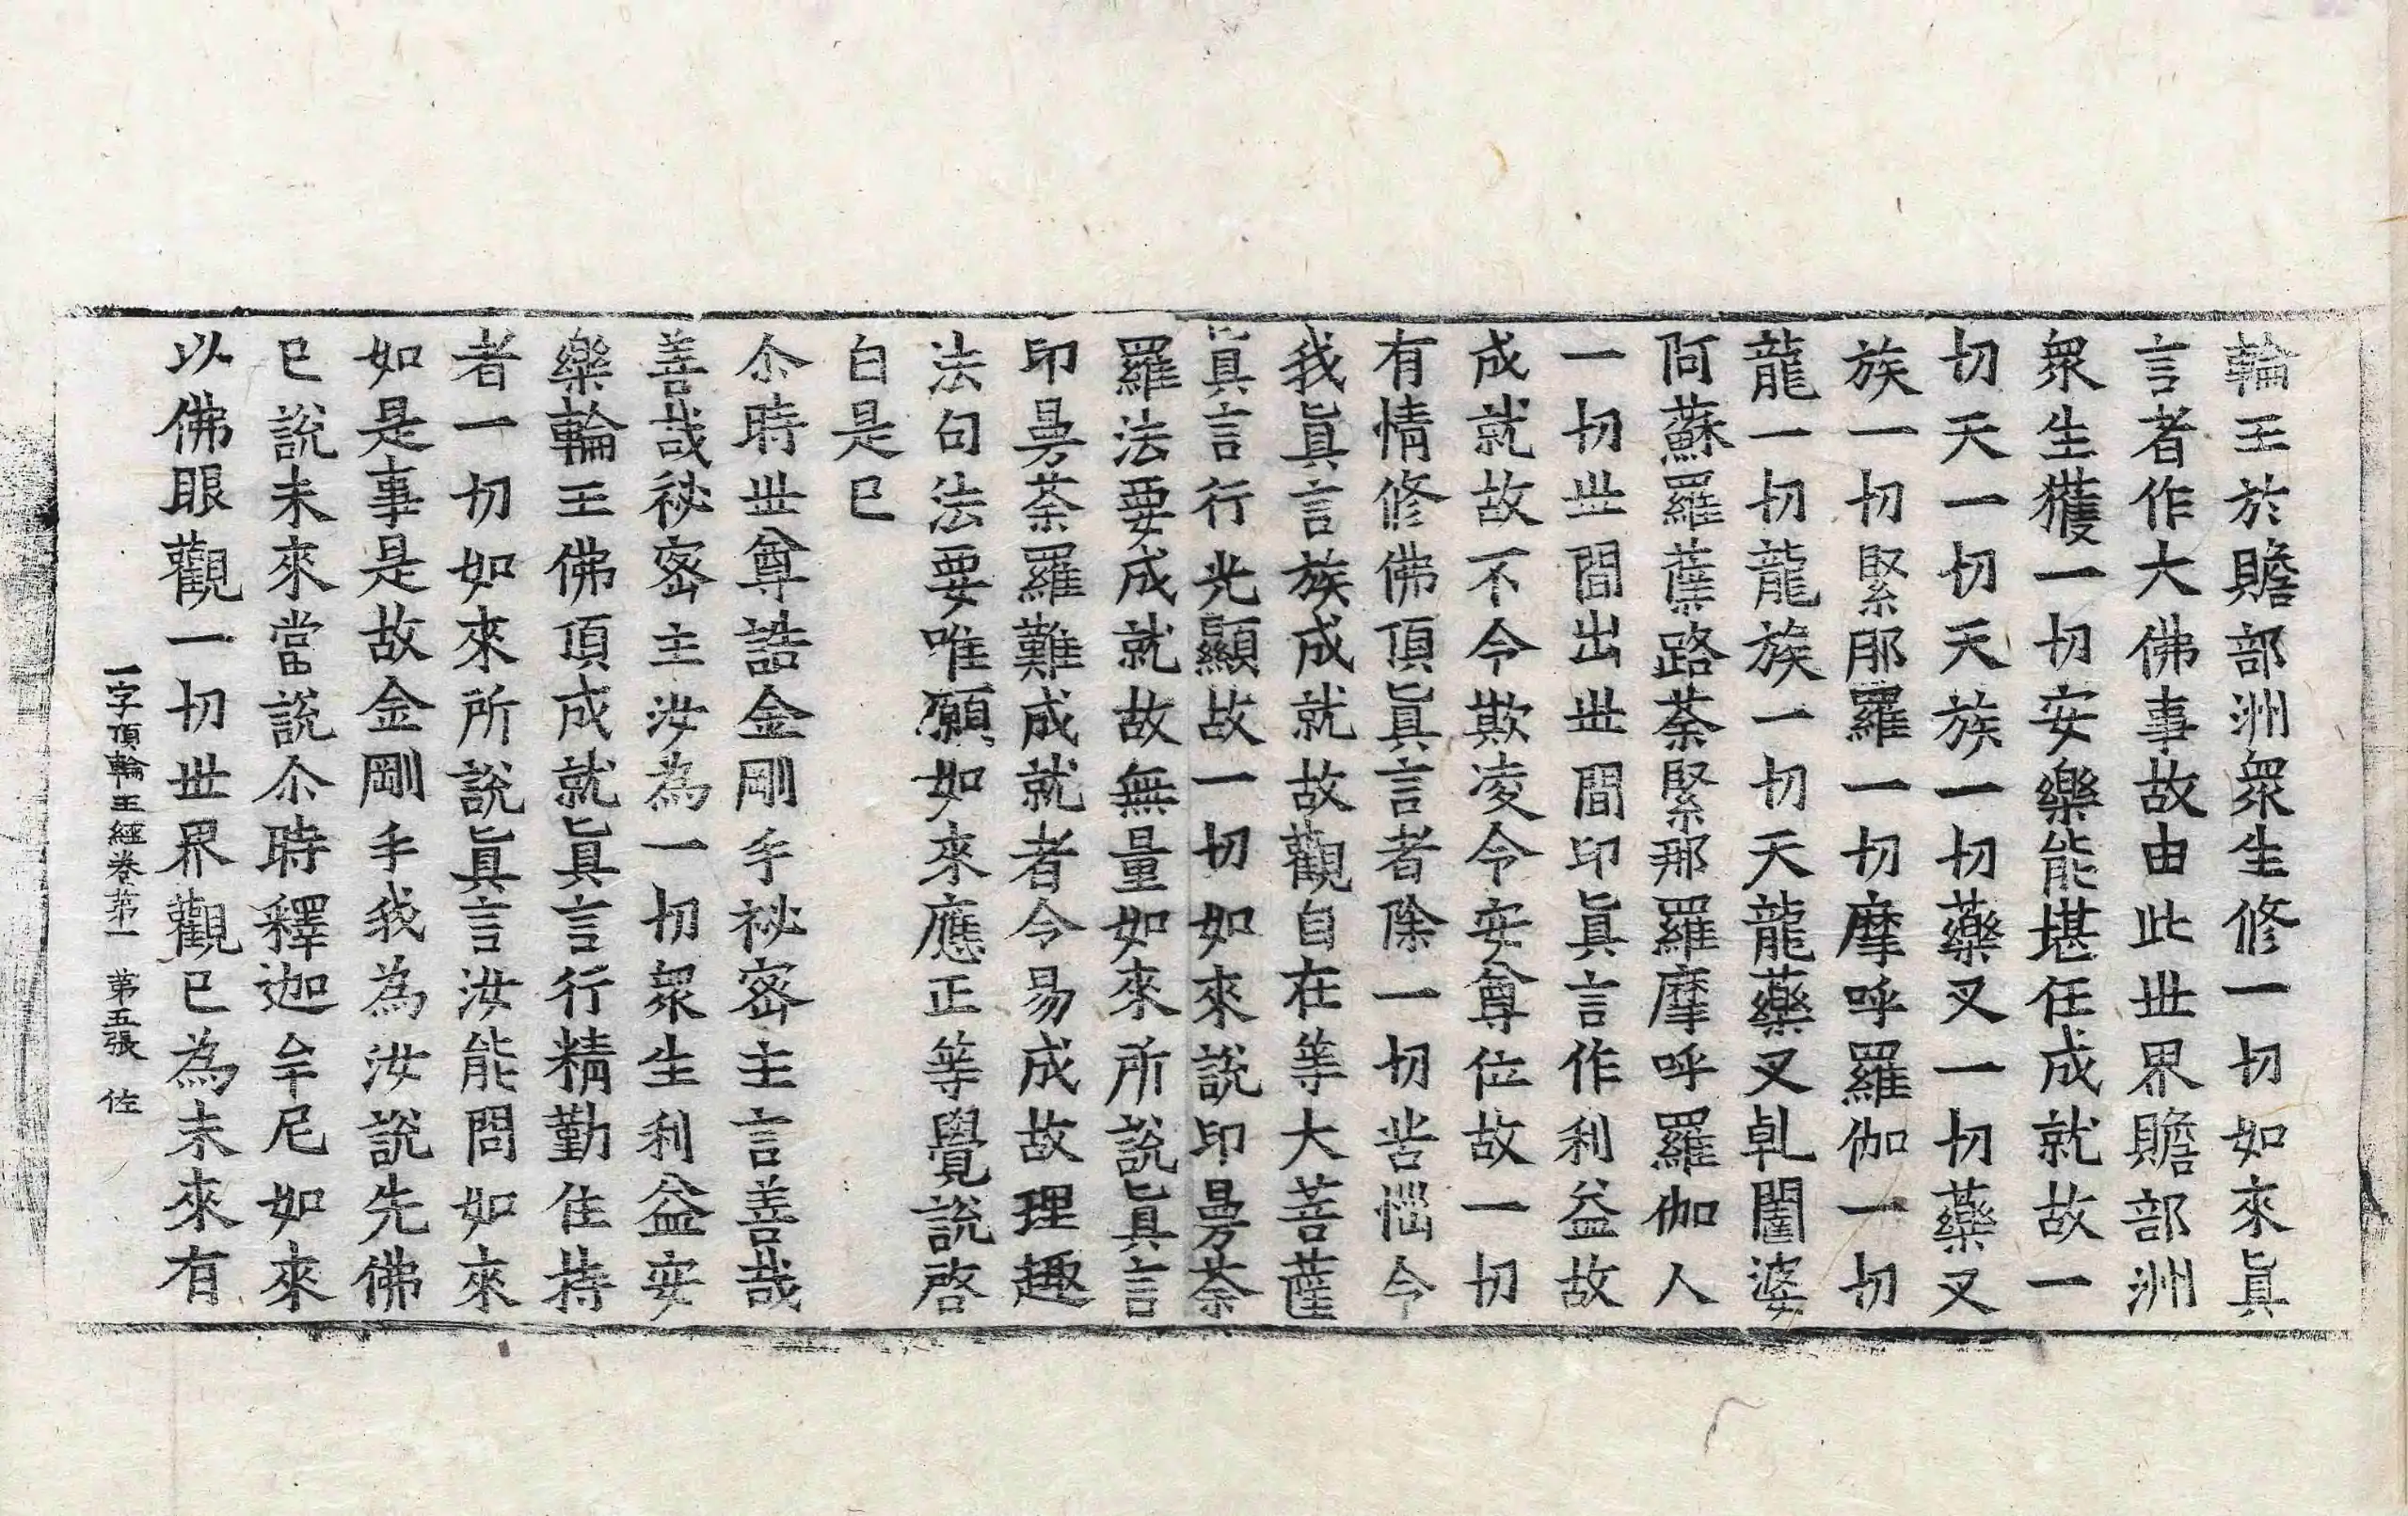 輪王於贍部洲衆生修一切如來眞
言者作大佛事故由此世界贍部洲
衆生獲一切安樂能堪任成就故一
切天一切天族一切藥叉一切藥叉
族一切緊那羅一切摩呼羅伽一切
龍一切龍族一切天龍藥叉乹闥婆
阿蘇羅蘖路荼緊那羅摩呼羅伽人
一切世間出世間印眞言作利益故
成就故不令欺凌令安尊位故一切
有情修佛頂眞言者除一切苦惱令
我眞言族成就故觀自在等大菩薩
眞言行光顯故一切如來說印曼荼
羅法要成就故無量如來所說眞言
印曼荼羅難成就者令易成故理趣
法句法要唯願如來應正等覺說啓
白是已
尒時世尊誥金剛手祕密主言善哉
善哉祕密主汝為一切衆生利益安
樂輪王佛頂成就眞言行精勤住持
者一切如來所說眞言汝能問如來
如是事是故金剛手我為汝說先佛
已說未來當說尒時釋迦牟尼如來
以佛眼觀一切世界觀已為未來有
一字頂輪王經卷第一 第五張 佐